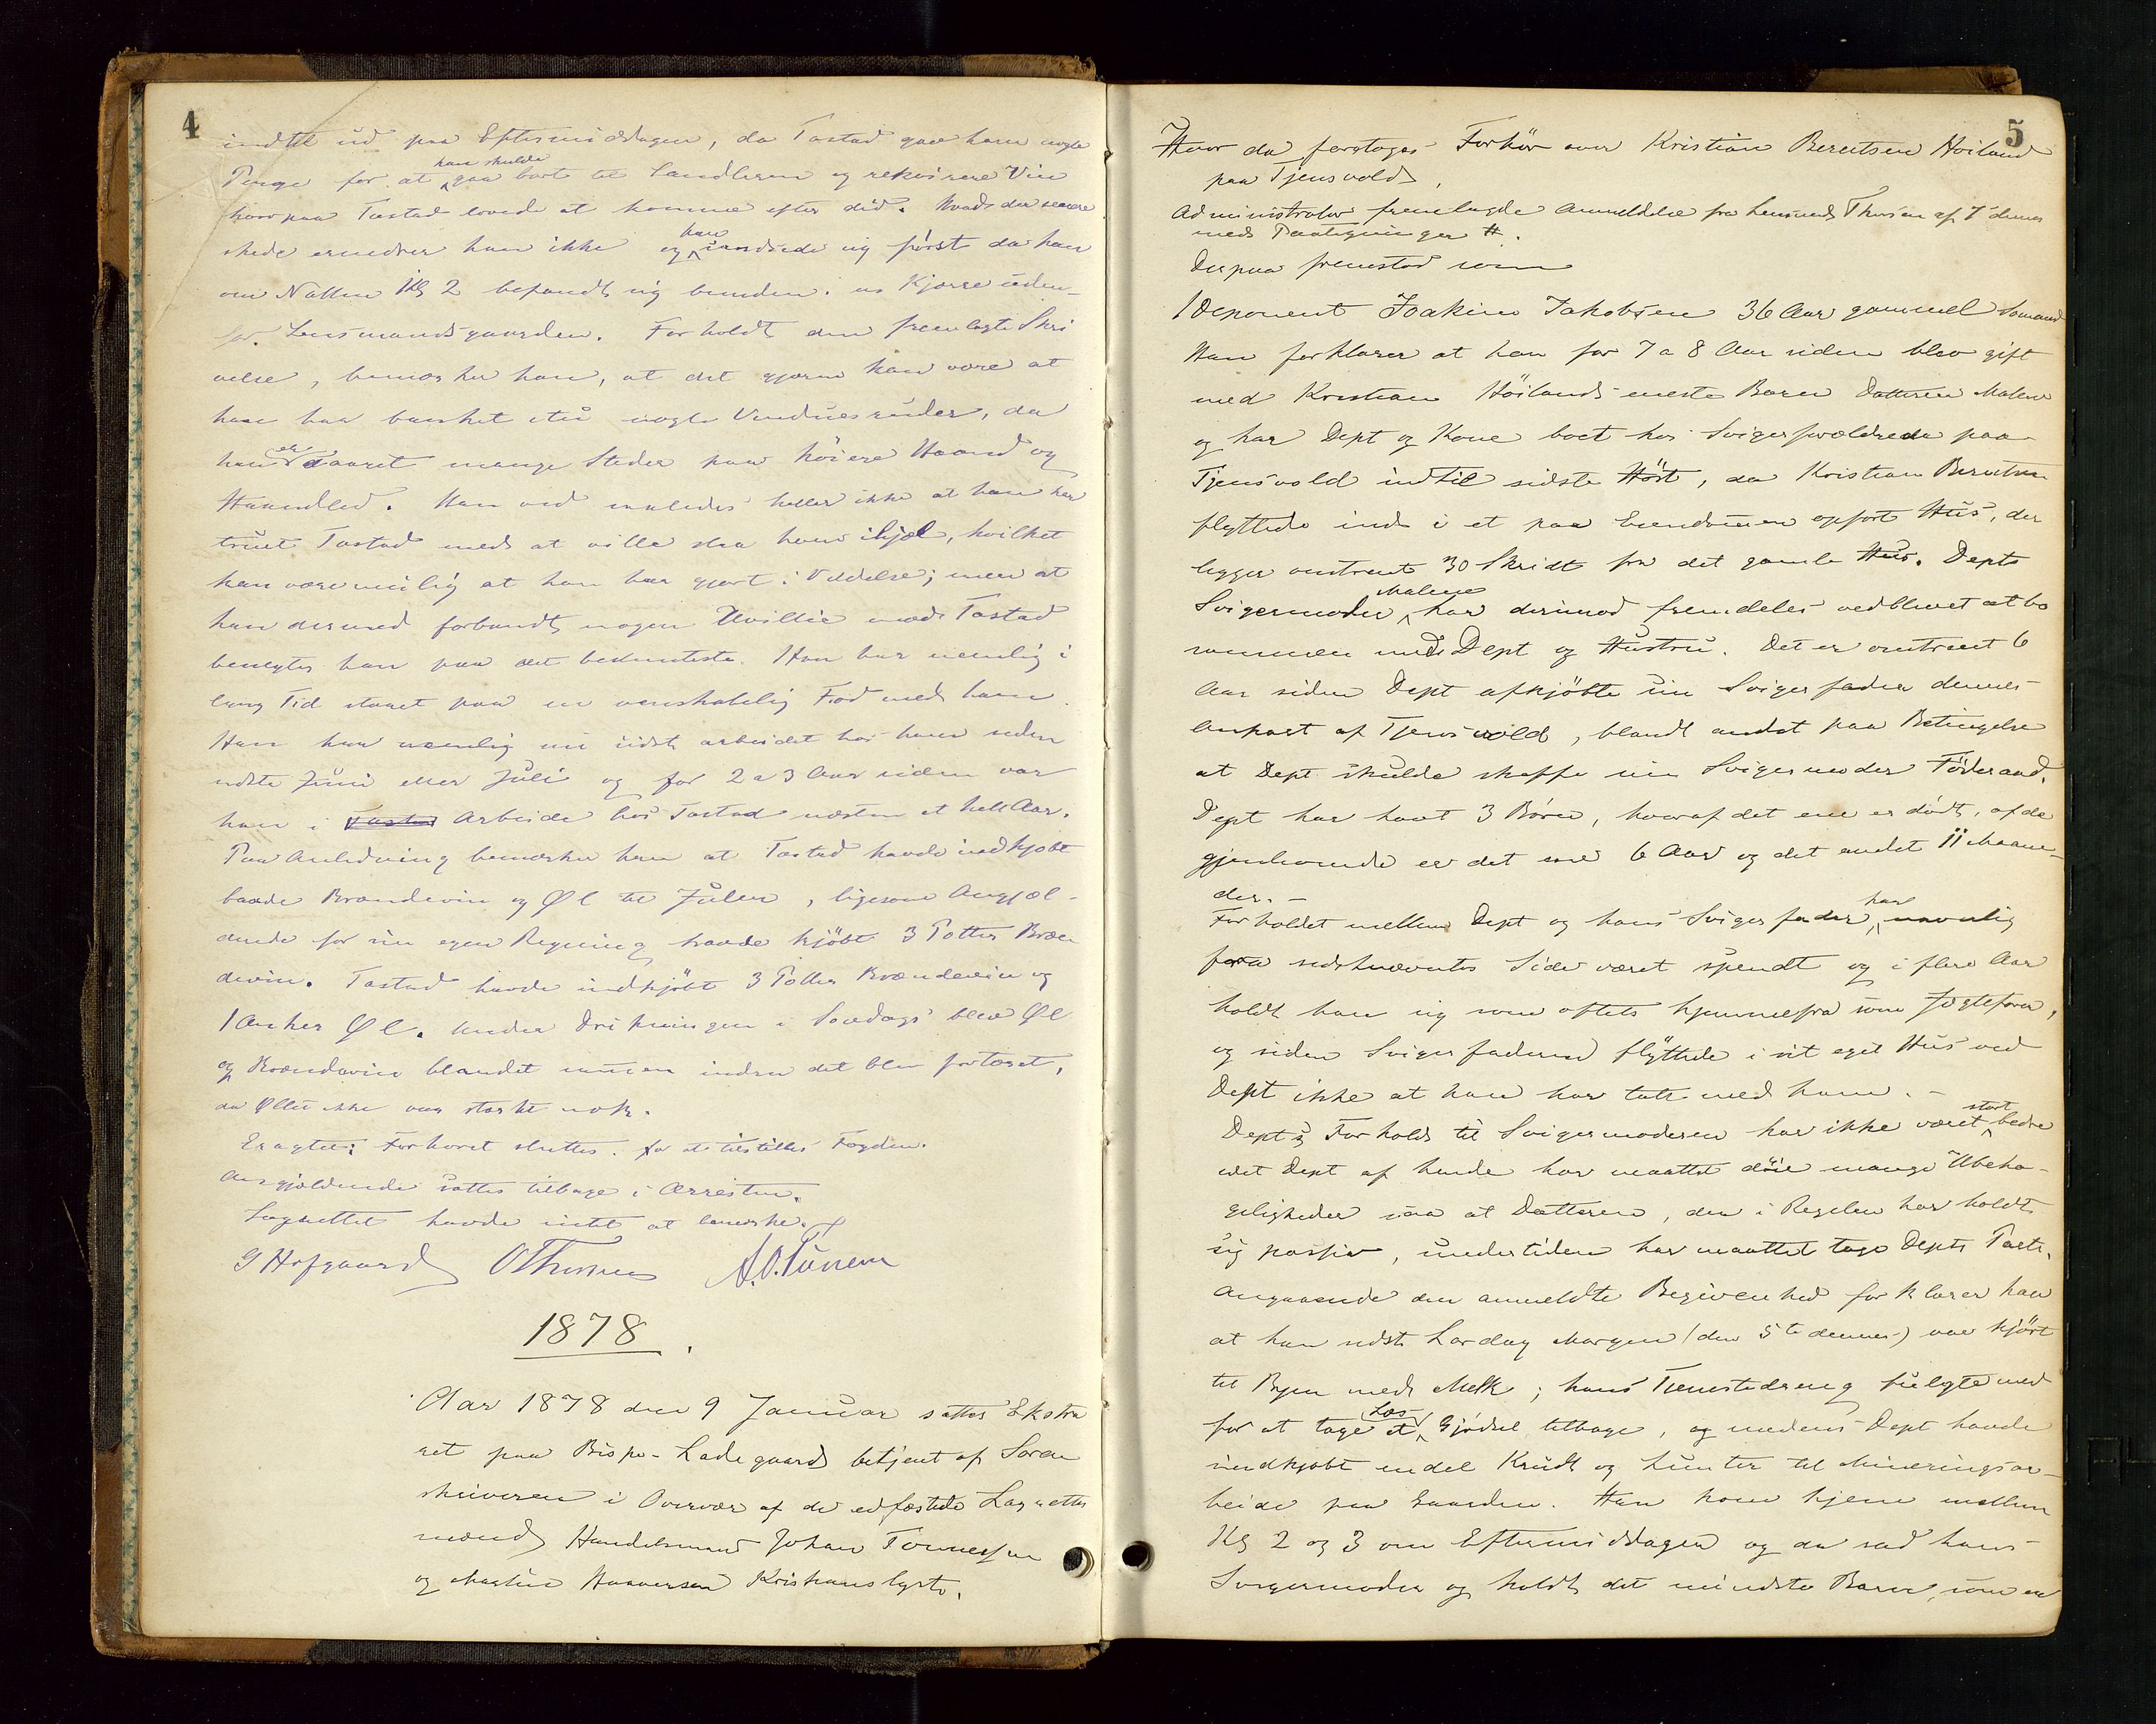 4
indtil ud paa Eftermiddagen, da Tastad gav ham nogle
Penge for at han skulde gaa bort til Landhren og rekvirere Vin
hvorpaa Tastad lovede at komme efter did. Hvad der senere
skede erindrer han ikke og han sandsede sig først da han
om Natten Kl 2 befandt sig bunden. en Kjærre uden-
for Lensmandsgaarden. Forholdt den fremlagte Skri
velse, bemærker han, at det gjerne kan være at
han har banket itu nogle Vinduesruder, da
han er saaret mange Steder paa høire Haand og
Haandled. Han ved saaledes heller ikke at han har
truet Tastad med at ville slaa ham ihjel, hvilket
kan være mulig at han har gjort i Vildelse; men at
han dermed forbandt nogen Uvillie mod Tastad
benegter han paa det bestemteste. Han har nemlig i
lang Tid staaet paa en venskabelig Fod med ham.
Han har nemlig nu sidst arbeidet hos ham siden
sidste Juni eller Juli og for 2 a 3 Aar siden var
han i Arbeide hos Tastad næsten et helt Aar.
Paa Anledning bemærker han at Tastad havde indkjøbt
baade Brændevin og Øl til Julen, ligesom Angjæl-
dende for sin egen Regning havde kjøbt 3 Potter Bræn
devin. Tastad havde indkjøbt 3 Potter Brændevin og
1 Anker Øl. Under Drikningen i Søndags blev Øl
og Brændevin blandet sammen inden det blev fortæret,
da Øllet ikke var stærkt nok.
Eragtet: Forhøret sluttes for at tilstilles Fogden.
Angjældende sattes tilbage i Arresten.
Lagrettet havde intet at bemærke.
G Hofgaard OThorsen A.O.Tunem
1878.
Aar 1878 den 9 Januar sattes Ekstra
ret paa Bispe-Ladegaard betjent af Soren
skriveren i Overvær af de edfæstede Lagrettes
mænd Handelsmand Johan Tønnessen
og Martin Haaversen Kristianslyst.
5
Hvor da foretoges Forhør over Kristian Berentsen Høiland
paa Tjensvold.
Administrator fremlagde Anmeldelse fra Lensmand Thorsen af 7 dennes
med Paategninger #.
Derpaa fremstod som
1 Deponent Joakim Jakobsen 36 Aar gammel Sømand
Han forklarer at han for 7 a 8 Aar siden blev gift
med Kristian Höilands eneste Barn Datteren Malene
og har Dept og Kone boet hos Svigerforældrede paa
Tjensvold indtil sidste Höst, da Kristian Berentsen
flyttede ind i et paa Eiendommen opført Hus, der
ligger omtrent 30 Skridt fra det gamle Hus. Depts
Svigermoder Malene har derimod fremdeles vedblevet at bo
sammen med Dept og Hustru. Det er omtrent 6
Aar siden Dept afkjöbte sin Svigerfader dennes
Anpart af Tjensvold, blandt andet paa Betingelse
at Dept skulde skaffe sin Svigermoder Föderaad.
Dept har havt 3 Børn, hvoraf det ene er dødt, af de
gjenlevende er det ene 6 Aar og det andet 11 Maane-
der. -
Forholdet mellem Dept og hans Svigerfader har navnlig
fra sidstnævntes Side været spendt og i flere Aar
holdt han sig som oftets hjemmefra som Jægtefører,
og siden Svigerfaderen flÿttede i sit eget Hus ved
Dept ikke at han har talt med ham. -
Dept's Forhold til Svigermoderen har ikke været stort bedre
idet Dept af hende har maattet döie mange Ubeha-
geligheder saa at Datteren, den i Regelen har holdt
sig passiv, undertiden har maattet tage Depts Parti.
Angaaende den anmeldte Begivenhed forklarer han
at han sidst Lørdag Morgen (den 5te dennes) var kjört
til Byen med Melk; hans Tjenestedreng fulgte med
for at tage et Læs Gjødsel tilbage, og medens Dept havde
indkjøbt endel Krudt og Lunter til Mineringsar-
beide paa Gaarden. Han kom hjem mellem
Kl 2 og 3 om Eftermiddagen og da sad hans
Svigermoder og holdt det mindste Barn, som er